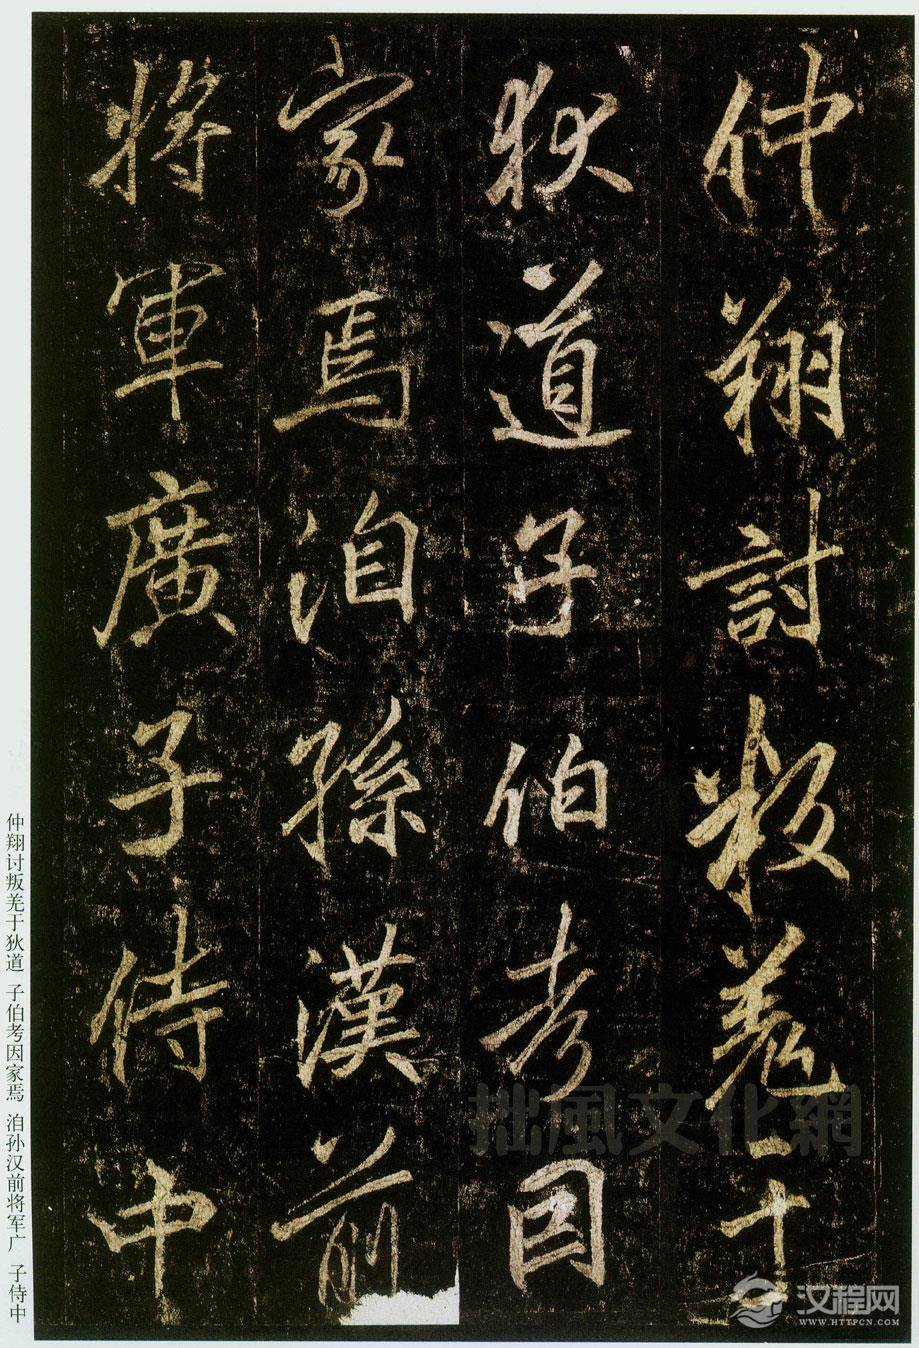 仲翔討叛羌于
狄道子伯考因
家焉洎孫漢前
將軍廣子侍中
仲翔讨叛羌于狄道 子伯考因家焉 洎孙汉前将军广 子侍中
拙風文化網
汉程网
WWW.HTTPCN.COM